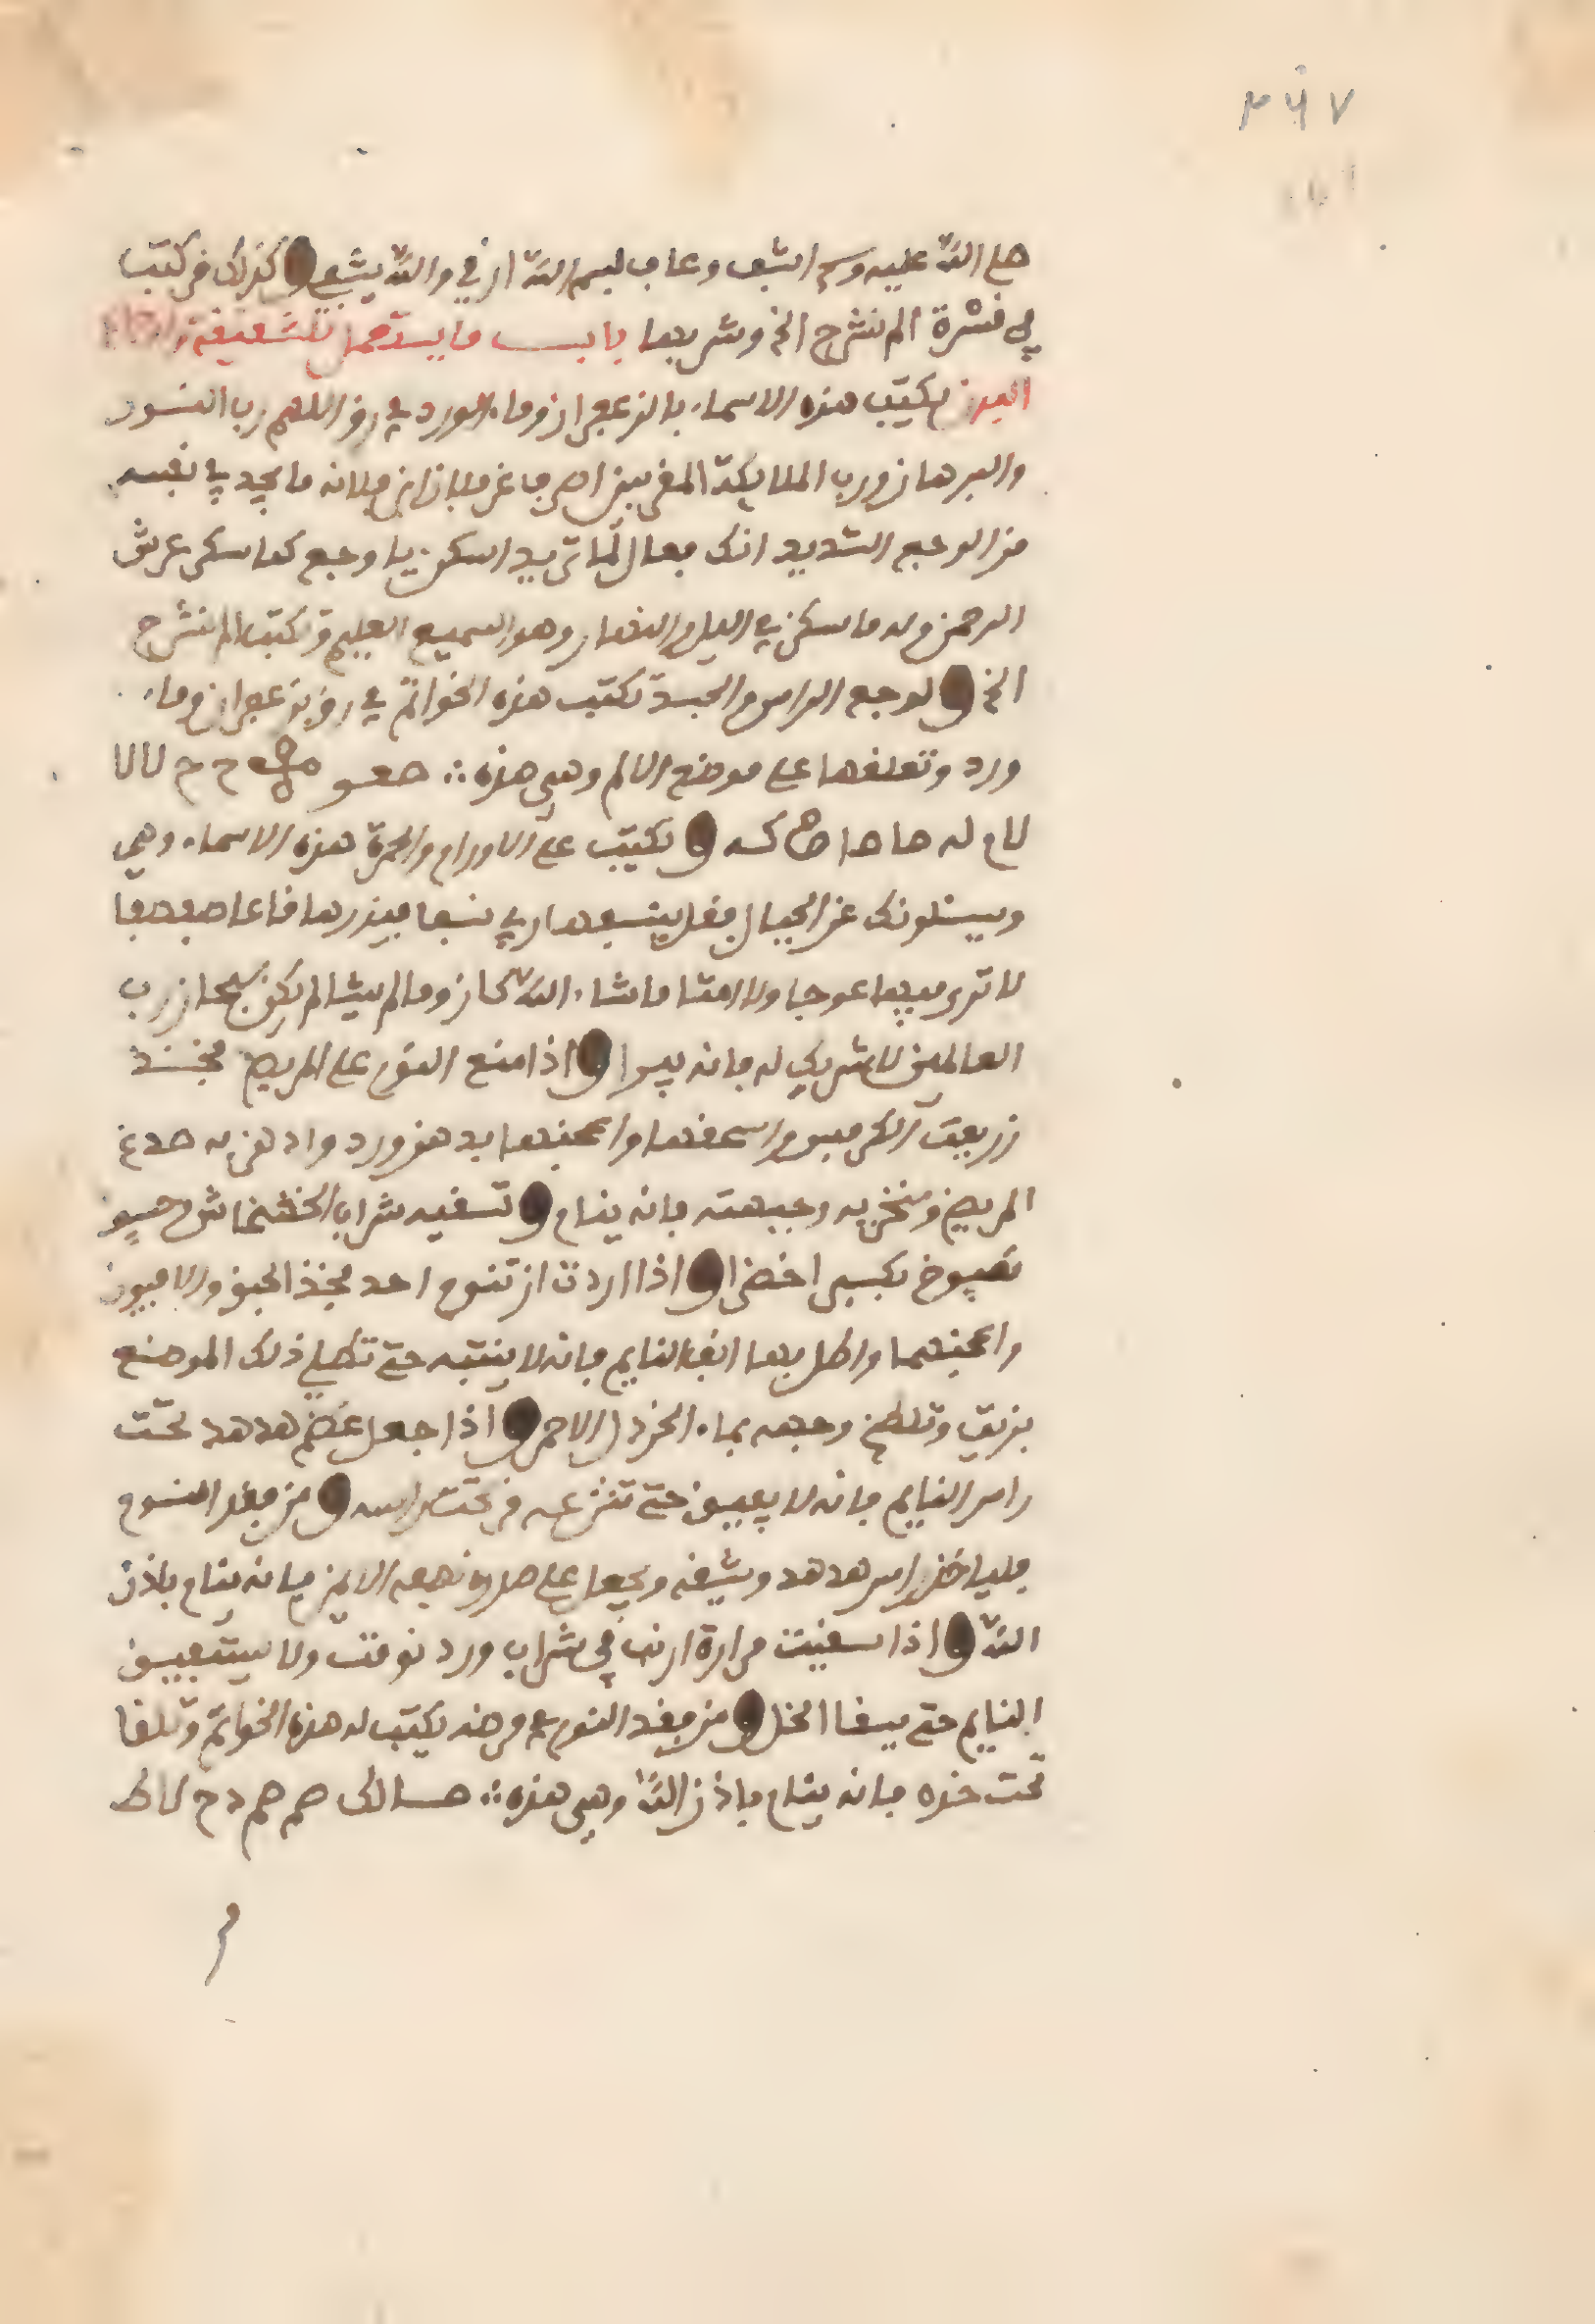 ٢٩٧
صلى الله عليه وسلم اشف وعاف بسم الله ارقي والله يشفي وكذلك من كتب
في نشرة الم نشرح الخ وشربها باب ما يستعمل للشقيقة
البدن يكتب هذه الاسماء بالزعفران وماء الورد في رق اللهم رب النور
والبرهان ورب الملايكة المقربين اصرف عن فلان ابن فلانة ما يجد في نفسه
من الوجع الشديد انك فعال لما تريد اسكن يا وجع كما سكن عرش
الرحمن وله ما سكن في الليل والنهار وهو السميع العليم وتكتب الم نشرح
الخ ولوجع الراس والجسد تكتب هذه الخواتم في رق بزعفران وماء
ورد وتعلقها على موضع الالم وهي هذه ∴ صعو ح ح لالا
لام له ها ها كه وتكتب على الاورام والحمرة هذه الاسماء وهي
ويسئلونك عن الجبال فقل ينسفها ربي نسفا فيذرها قاعا صفصفا
لا ترى فيها عوجا ولا امتا ما شاء الله كان وما لم يشا لم يكن سبحان رب
العالمين لا شريك له فانه يبرا واذا منع النوم على المريض فخذ
زريعت الكرفس واسحقها واعجنها بدهن ورد وادهن به صدغ
المريض ومنخريه وجبهته فانه ينام وتسقيه شراب الخشخاش
بكسبر اخضر واذا اردت ان تنوم احد فخذ البنج والافيون
واعجنهما واطل بها انف النايم فانه لا ينتبه حتى تطلي ذلك الموضع
بزيت وتلطخ وجهه بماء الخردل الاحمر واذا جعل عظم هدهد تحت
راس النايم فانه لا يفيق حتى تنزعه من تحت راسه ومن فقد النوم
فليا خذ راس هدهد ويشقه ويجعل على صدره فانه ينام باذن
الله واذا سقيت مرارة ارنب في شراب ورد نومت ولا يستفيق
النايم حتى يسقا الخل ومن فقد النوم في مرضه يكتب له هذه الخواتم وتلقا
تحت خده فانه ينام باذن الله وهي هذه ∴ هسا لك صم صم د ح لاط
م